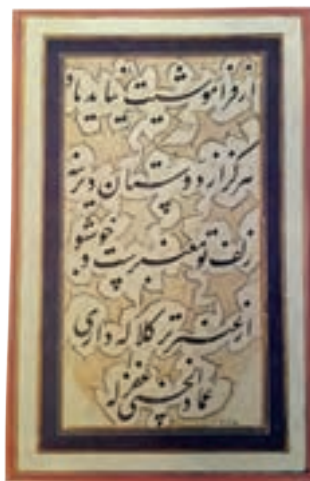 از فراموشیت نیاید یاد
هرگز از دوستان دیرینه
زلف تو معنبرست و خوشبو
از عنبر تر کلاله داری
عماد الحسنی غفرله